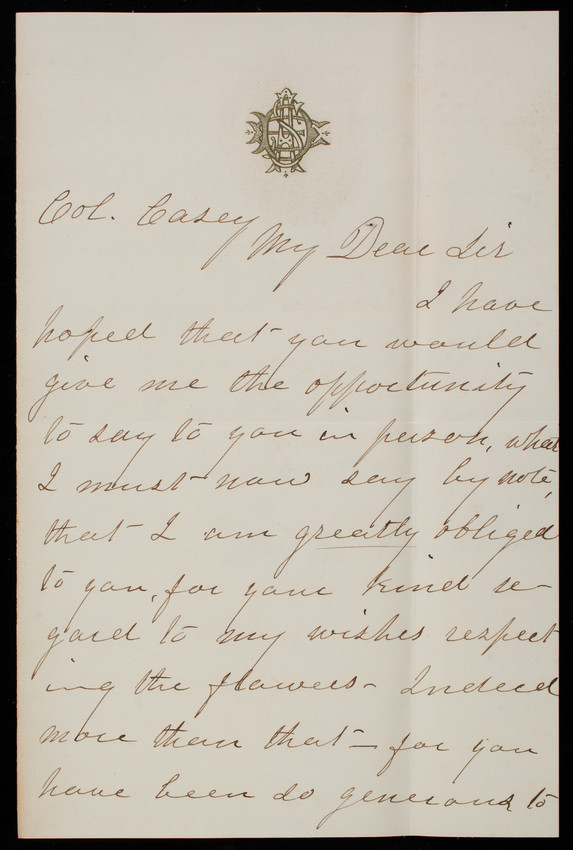 Col. Casey
My Dear Sir
I have
hoped that you would
give me the opportunity
to say to you in person, what
I must now say by note,
that I am greatly obliged
to you, for your kind re-
gard to my wishes respect
ing the flowers - Indeed
more than that - for you
have been so generous to